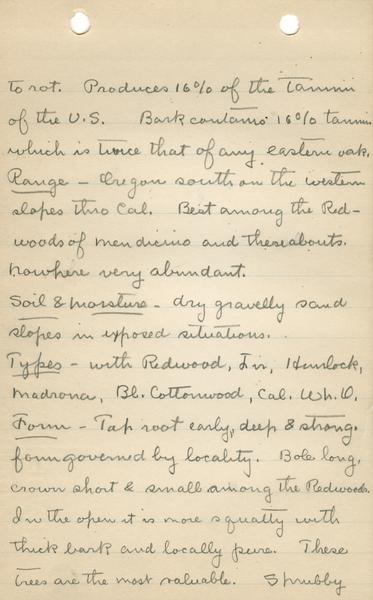 to rot. Produces 16% of the Tannin
of the U.S. Bark contains 16% tannin
which is twice that of any eastern oak.
Range - Oregon south on the western
slopes thro Cal. Best among the Red-
woods of Mendicino and thereabouts.
Nowhere very abundant.
Soil & Moisture - dry gravelly sand
slopes in exposed situations.
Types - with Redwood, Fir, Hemlock,
Madrona, Bl. Cottonwood, Cal. Wh. O.
Form - Tap root early, deep & strong.
form governed by locality. Bole long,
crown short & small among the Redwoods.
In the open it is more squatty with
thick bark and locally pure. These
trees are the most valuable. Shrubby